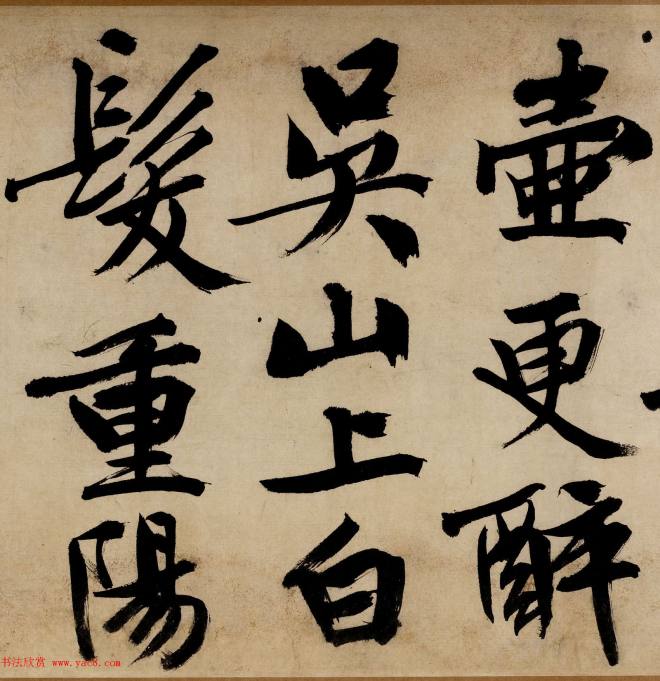 壺更辭
吳山上白
髮重陽
书法欣赏 www.yac8.com